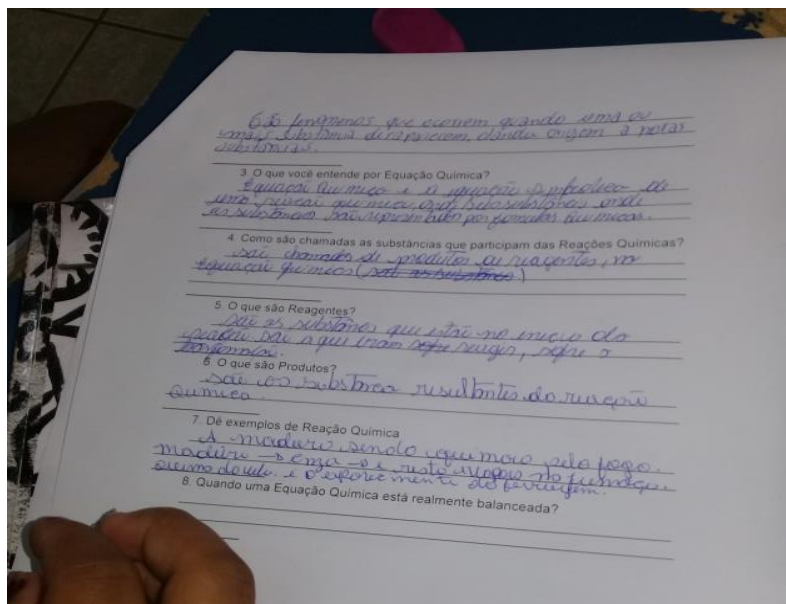 São fenômenos que ocorrem quando uma ou
mais substância desaparecem, dando origem a
substâncias.
3 O que você entende por Equação Química?
Equação Química e a equação simbolica de
uma química, onde
as substâncias são por formulas Químicas.
4. Como são chamadas as substâncias que participam das Reações Químicas?
são chamados de produtos ou reagentes, na
Equação química (são as substância)
5. O que são Reagentes?
são as substâncias que estão no inicio da
são a que iram reagir, sofre a
6. O que são Produtos?
São as substância resultantes da reação
Química.
7. Dê exemplos de Reação Química
A madeira sendo pelo fogo.
madeira
e o da ferrugem.
8. Quando uma Equação Química está realmente balanceada?